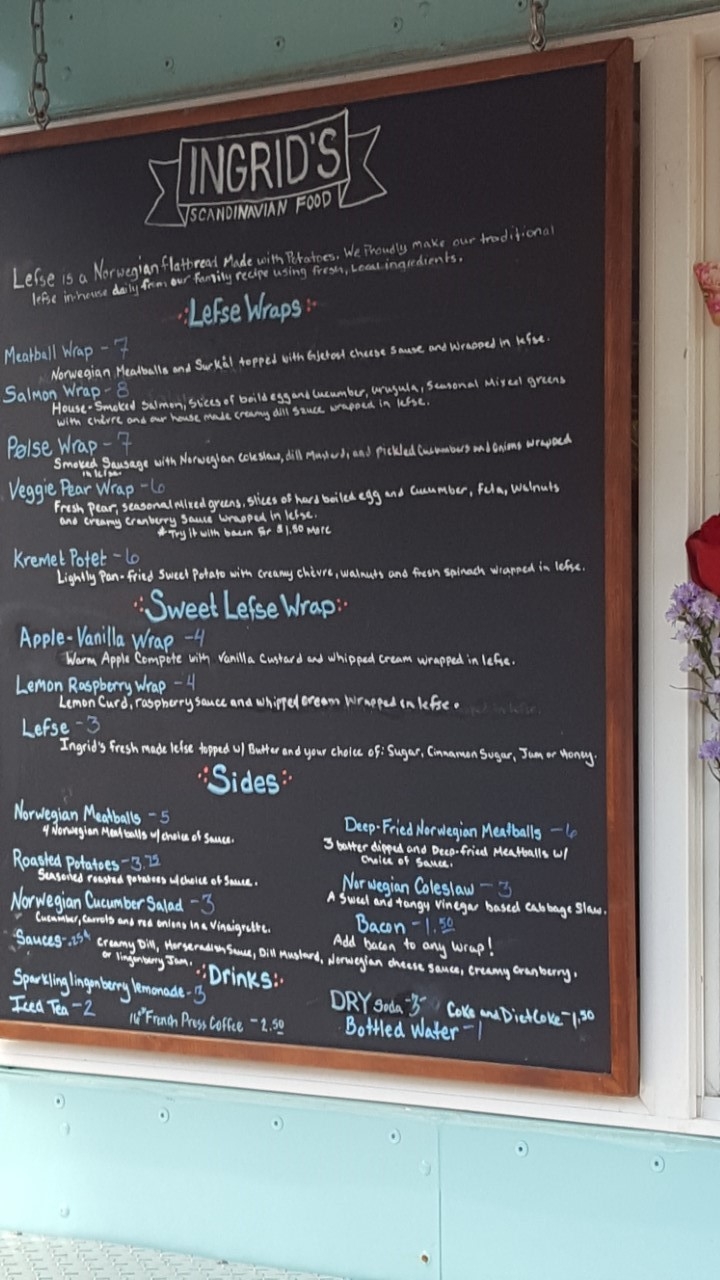 INGRID'S
SCANDINAVIAN FOOD
Lefse is a Norwegian flatbread Made with Potatoes. We Proudly make our traditional
lefse in-house daily from our family recipe using fresh, Local ingredients.
Lefse Wraps
Meatball Wrap - 7
Norwegian Meatballs and Surkål topped with Gjetost cheese Sause and Wrapped in lefse.
Salmon Wrap - 8
House-Smoked Salmon, Slices of boild egg and Cucumber, urugula, Seasonal Mixed greens
with chèvre and our house made creamy dill Sauce wrapped in lefse.
Pølse Wrap - 7
Smoked Sausage with Norwegian Coleslaw, dill Mustard, and pickled Cucumbers and Onions wrapped
in lefse.
Veggie Pear Wrap - 6
Fresh Pear, seasonal mixed greens, slices of hard boiled egg and Cucumber, Feta, Walnuts
and creamy Cranberry Sauce wrapped in lefse.
*Try it with bacon for $1.50 More
Kremet Potet - 6
Lightly Pan-fried Sweet Potato with Creamy chèvre, walnuts and fresh spinach wrapped in lefse.
Sweet Lefse Wrap
Apple-Vanilla Wrap - 4
Warm Apple Compote with Vanilla Custard and whipped Cream wrapped in lefse.
Lemon Raspberry Wrap - 4
Lemon Curd, raspberry sauce and whipped Cream Wrapped in lefse.
Lefse - 3
Ingrid's Fresh made lefse topped w/ Butter and your choice of: Sugar, Cinnamon Sugar, Jam or Honey.
Sides
Norwegian Meatballs - 5
4 Norwegian Meatballs w/ choice of Sauce.
Roasted Potatoes - 3.75
Seasoned roasted potatoes w/ choice of Sauce.
Norwegian Cucumber Salad - 3
Cucumber, Carrots and red onions in a Vinaigrette.
Deep-Fried Norwegian Meatballs - 6
3 batter dipped and Deep-fried Meatballs w/
Choice of Sauce.
Norwegian Coleslaw - 3
A Sweet and tangy Vinegar based Cabbage Slaw.
Bacon - 1.50
Add bacon to any Wrap!
Sauces - .25¢ Creamy Dill, Horseradish Sauce, Dill Mustard, Norwegian cheese sauce, Creamy Cranberry,
or lingonberry Jam.
Drinks
Sparkling lingonberry lemonade - 3
Iced Tea - 2
16oz French Press Coffee - 2.50
DRY Soda - 3
Coke and Diet Coke - 1.50
Bottled Water - 1